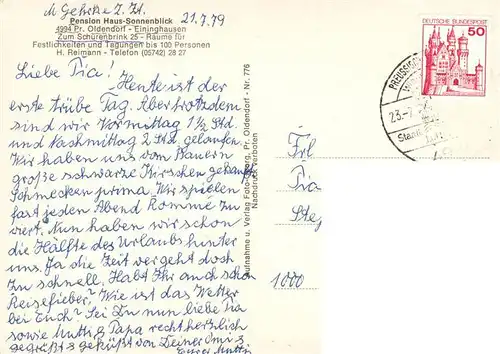 M Gehrke z. Zt.
Pension Haus-Sonnenblick
21.7.79
4994 Pr. Oldendorf - Eininghausen
Zum Schürenbrink 25 - Räume für
Festlichkeiten und Tagungen bis 100 Personen
H. Reimann - Telefon (05742) 28 27
Liebe Pia!
Heute ist der
erste trübe Tag. Aber trotzdem
sind wir Vormittag 1½ Std.
und Nachmittag 2 Std gelaufen.
Wir haben uns vom Bauern
große schwarze Kirschen gekauft
schmecken prima. Wir spielen
fast jeden Abend Romme zu
viert. Nun haben wir schon
die Hälfte des Urlaubs hunter
uns. Ja die Zeit vergeht doch
zu schnell. Habt Ihr auch schon
Reisefieber? Wie ist das Wetter
bei Euch? Sei Du nun liebe Pia
sowie Mutti & Papa recht herzlich
gegrüßt & geküßt von Deiner Omi &
Eurer Mutti
Aufnahme u. Verlag Foto Pr. Oldendorf - Nr. 776
Nachdruck verboten
DEUTSCHE BUNDESPOST
50
PREUSSISCH
23.-7.
Frl
Pia
Steg
1000